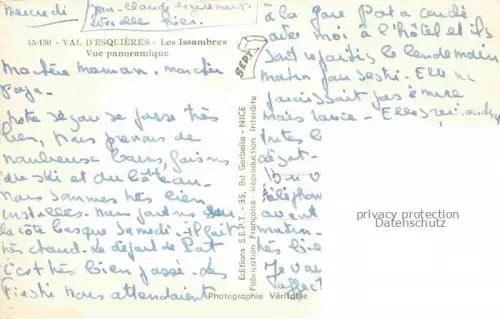 Mercredi
Jean-Claude
hier.
45-430 - VAL D'ESQUIÈRES - Les Issambres
Vue panoramique
Ma chère maman, mon cher
Papa.
Notre séjour se passe très
bien, nous prenons de
nombreux bains, faisons
du ski et du bateau.
Nous sommes très bien
installés. Nous partons pour
la côte basque Samedi. Il fait
très chaud. Le départ de Pat
s'est très bien passé. Les
nous attendaient
à la gare Pat a couché
avec moi à l'hôtel et ils
sont repartis le lendemain
matin Elle ne
paraissait pas émue
mais ravie. Elle
toutes
départ.
téléphon
avant
matin.
très bie
Je vous
affect
S.E.P.T.
Editions S.E.P.T. - 35, Bd Gorbella - NICE
Fabrication Française - Reproduction Interdite
Photographie Véritable
privacy protection
Datenschutz